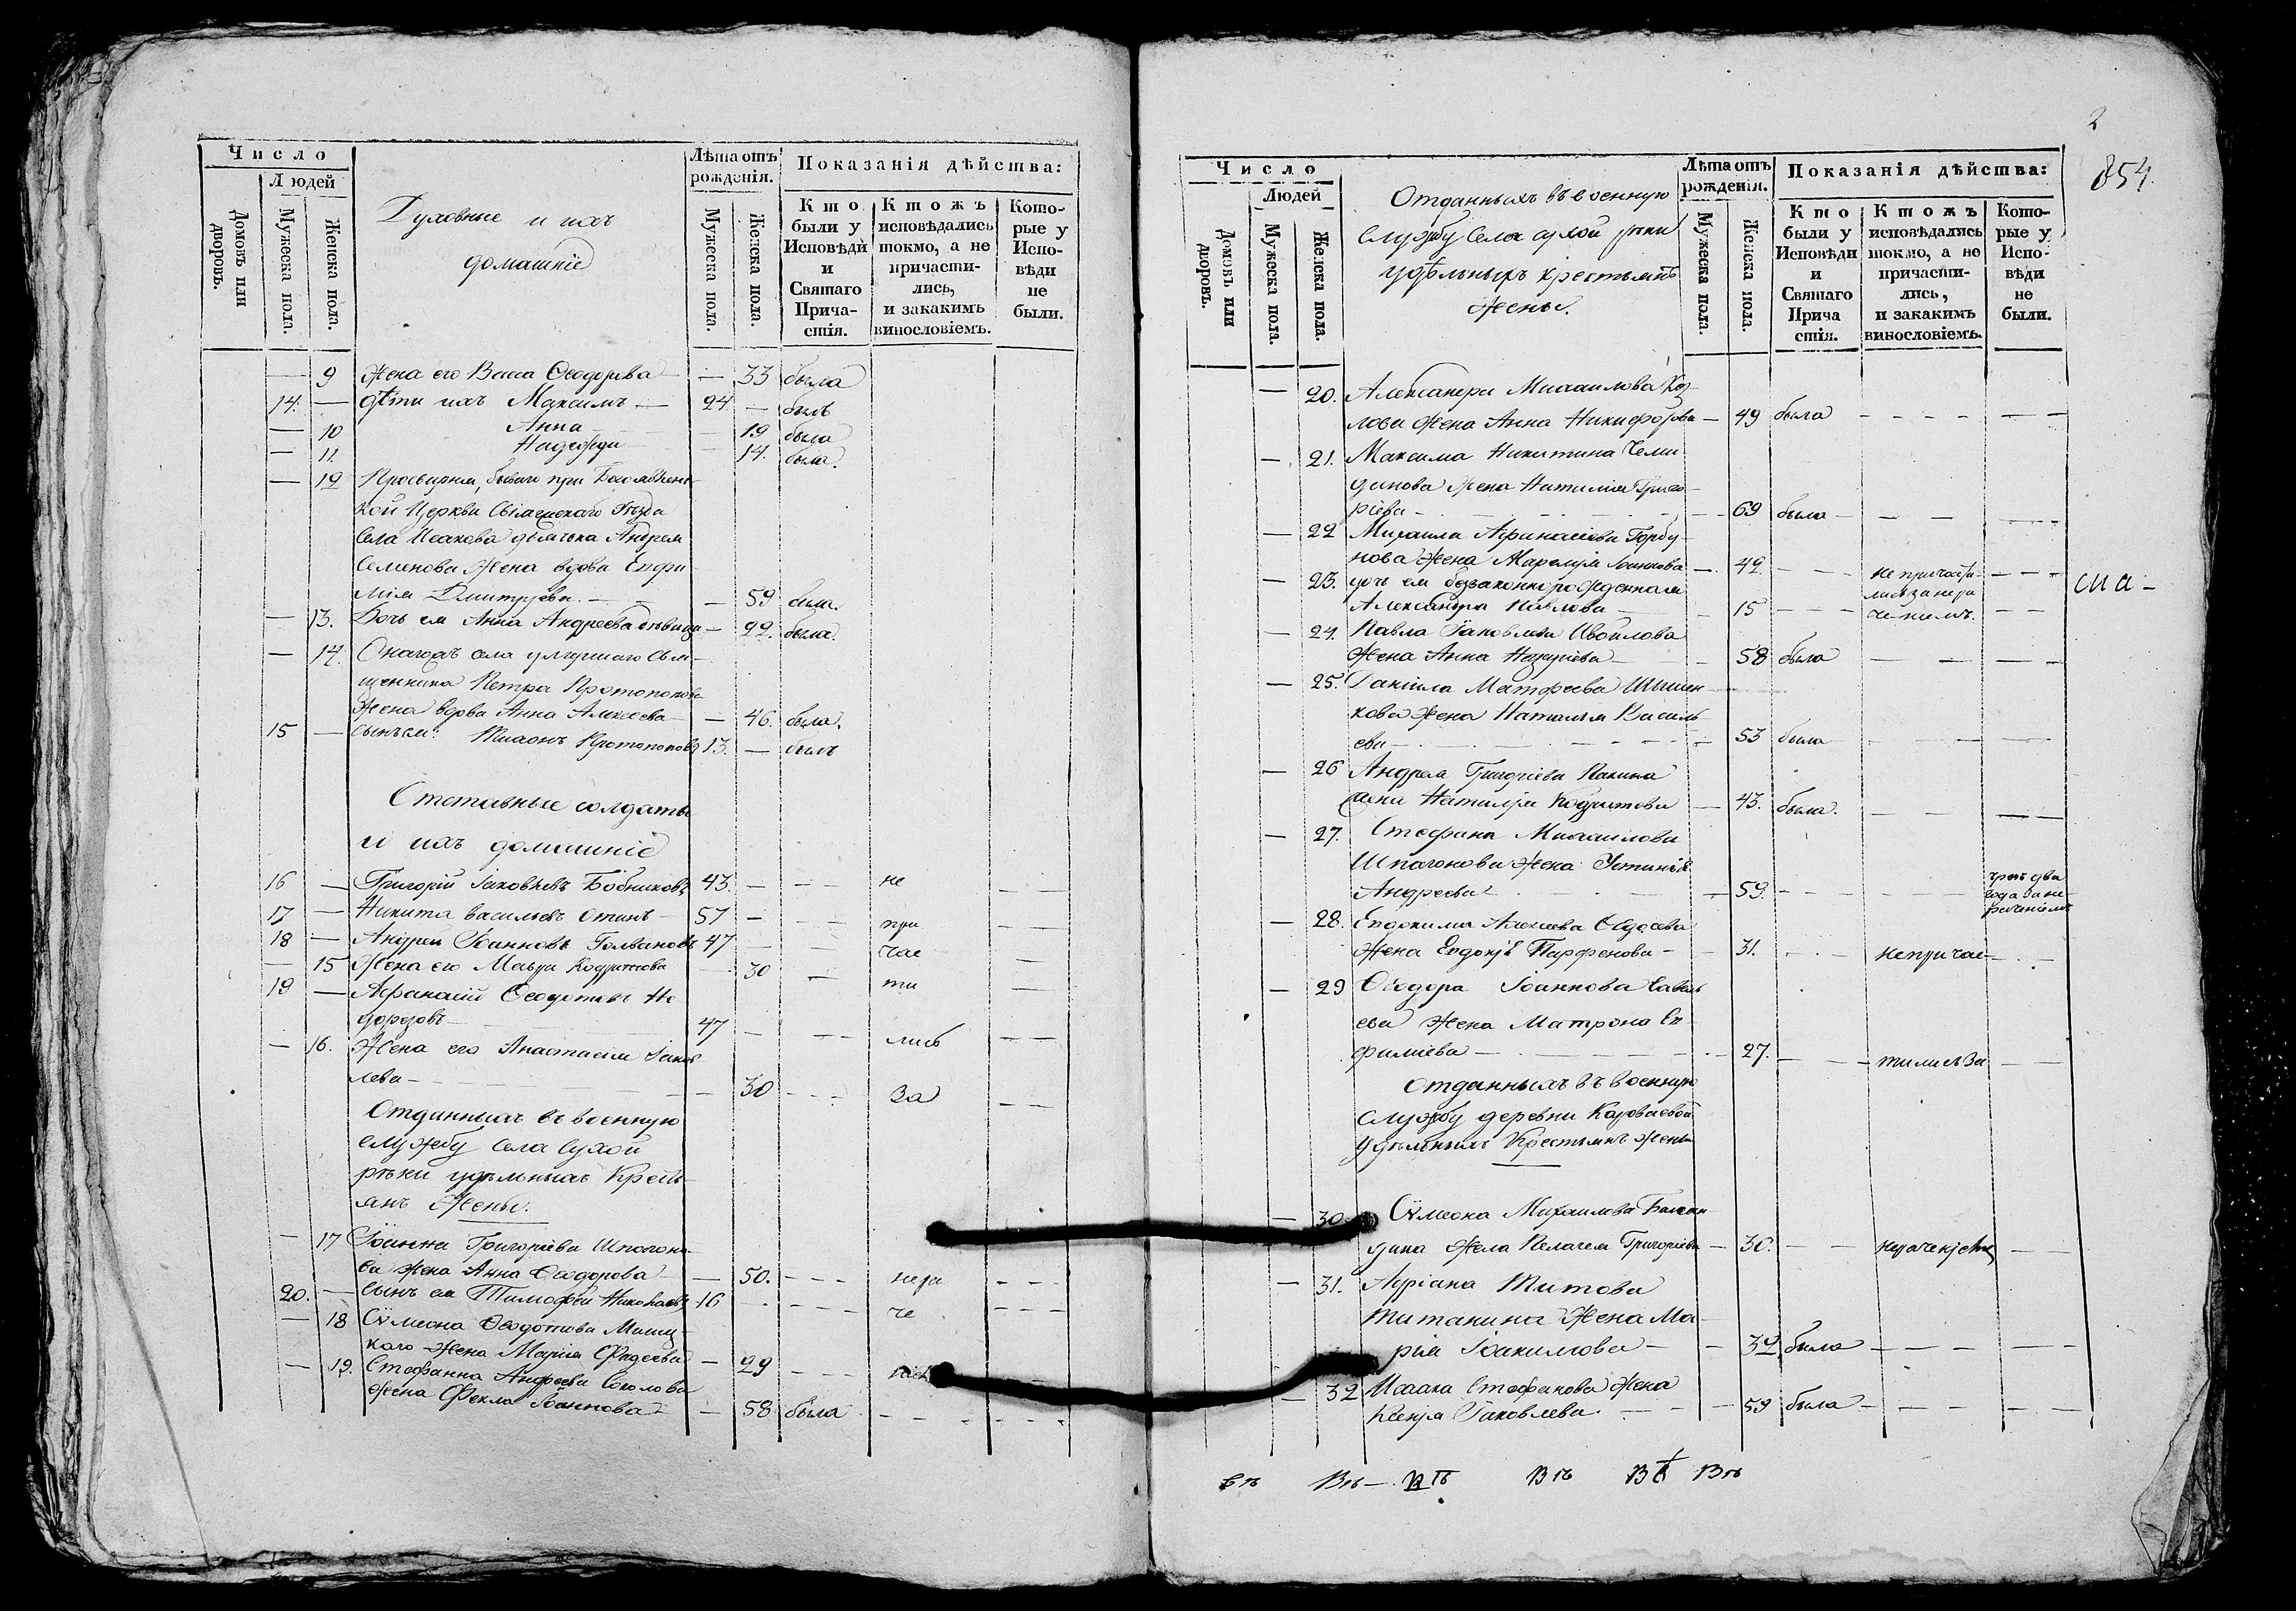 Число
Людей
Домовъ или дворовъ.
Мужеска пола.
Женска пола.
Духовные и ихъ
домашніе
Лѣта отъ рожденія.
Мужеска пола.
Женска пола.
Показанія дѣйства:
Кто были у Исповѣди и Святаго Причастія.
Ктожъ исповѣдались токмо, а не причастились, и закакимъ винословіемъ.
Которые у Исповѣди не были.
— 9 Жена его Васса Ѳеодорова — 33 была
14. — дѣти ихъ Максимъ — 24 — былъ
— 10 Анна — 19 была
— 11. Надежда — 14. была.
— 12 Просвирня, бывшаго при
кой Церкви уѣзда
села Исакова дьячька Андрея
Семенова жена вдова Евфи
мія Дмитріева. — — 59 была.
— 13. Дочь ея Анна Андреева дѣвица — 22. была.
— 14. села умершаго свя-
щенника Петра Протопопова
жена вдова Анна Алексеева — 46. была.
15 — сынъ ея Тихонъ Протопоповъ 13. — былъ
Отставные солдаты
и ихъ домашніе
16 — Григорій Іаковлевъ Бобниковъ 43. — — — не — —
17 — Никита Васильевъ — 57 — — — при — —
18 — Андрей Іоанновъ 47 — — — час
— 15 Жена его Мавра Кодратова — 30 — ти —
19 — Афанасій Ѳеодотовъ Не
дорезовъ — 47 — — — лись — —
— 16. Жена его Анастасія Іаков
лева — — 30 — — — за — —
Отданныхъ въ военную
службу села Сухой
рѣки удѣльныхъ Кресть
янъ Жены.
— 17 Іоанна Григоріева Шпагоно-
ва жена Анна Ѳеодорова — 50. — — — нера — — —
20. — сынъ ея Тимофей Николаевъ 16 — — — — че — — —
— 18 Сѵмеона Ѳеодотова
каго жена Марія Фадеева — 29 — — —
— 19. Стефанна Андреева Соколова
жена Фекла Іоаннова — — 58 была — — — — — —
2
854.
Число
Людей
Домовъ или дворовъ.
Мужеска пола.
Женска пола.
Отданныхъ въ военную
службу села сухой рѣки
удѣльныхъ крестьянъ
жены.
Лѣта отъ рожденія.
Мужеска пола.
Женска пола.
Показанія дѣйства:
Кто были у Исповѣди и Святаго Прича стія.
Ктожъ исповѣдались токмо, а не причасти-лись, и закакимъ винословіемъ.
Которые у Исповѣди не были.
— 20. Александра Михаилова Коз-
лова жена Анна Никифорова — 49 была — — — — — —
— 21. Максима Никитина Чемо
данова жена Наталія Григо-
ріева — — 69 была — — — —
— 22 Михаила Афанасіева Горбу-
нова жена Марѳа Іоаннова — 42 — — — не причасти- — — —
— 23. дочь ея беззаконнорожденная лись за нера
Александра Павлова — 15 — — — чениемъ. — —
сиа —
— 24. Павла Іаковлева Исвоилова
жена Анна — 58 была — — — —
— 25. Даніила Матфеева Шишен
кова жена Наталья Василь
ева — — 53 была — — —
— 26 Андрея Григоріева
жена Наталія Кодратова — 43. была. — — — —
— 27. Стефана Михаилова
Шпагонова жена Устинія
Андреева — — 59. — — — — чрезъ два
года за не
раченіемъ
— 28. Евдокима Алексеева Ѳедосеева
жена Евдокія Парфенова — 31. — — непричас- — —
— 29 Ѳеодора Іоаннова Савель
ева жена Матрона Ев
фиміева — — 27. — — тились за — —
Отданныхъ въ военную
службу деревни Короваевой
Удѣльныхъ Крестьянъ жены
— 30 Сѵмеона Михаилова
дина жена Пелагея Григоріева — 30. — —  —
— 31. Адріана Титова
Титанина жена Ма-
рія Іоакимова — — 32 была — — — — —
— 32 Исаака Стефанова жена
Ксенія Іаковлева. — — 59 была — — — — —